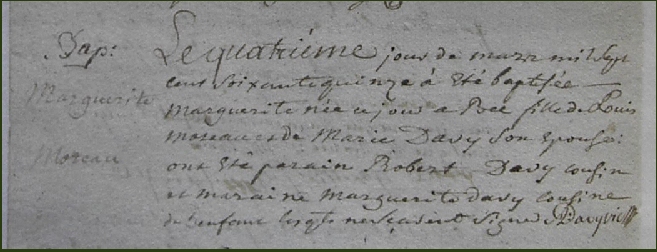 Bap:
Marguerite
Moreau
Le quatriéme jour de mars mil sept
cent soixante quinze à été baptisée
Marguerite née ce jour a Bocé fille de Louis
moreau et de Marie Davy son epouse:
ont été parain Robert Davy cousin
et maraine marguerite davy cousine
de l'enfant lesqls ne sçavent signer Davy vic